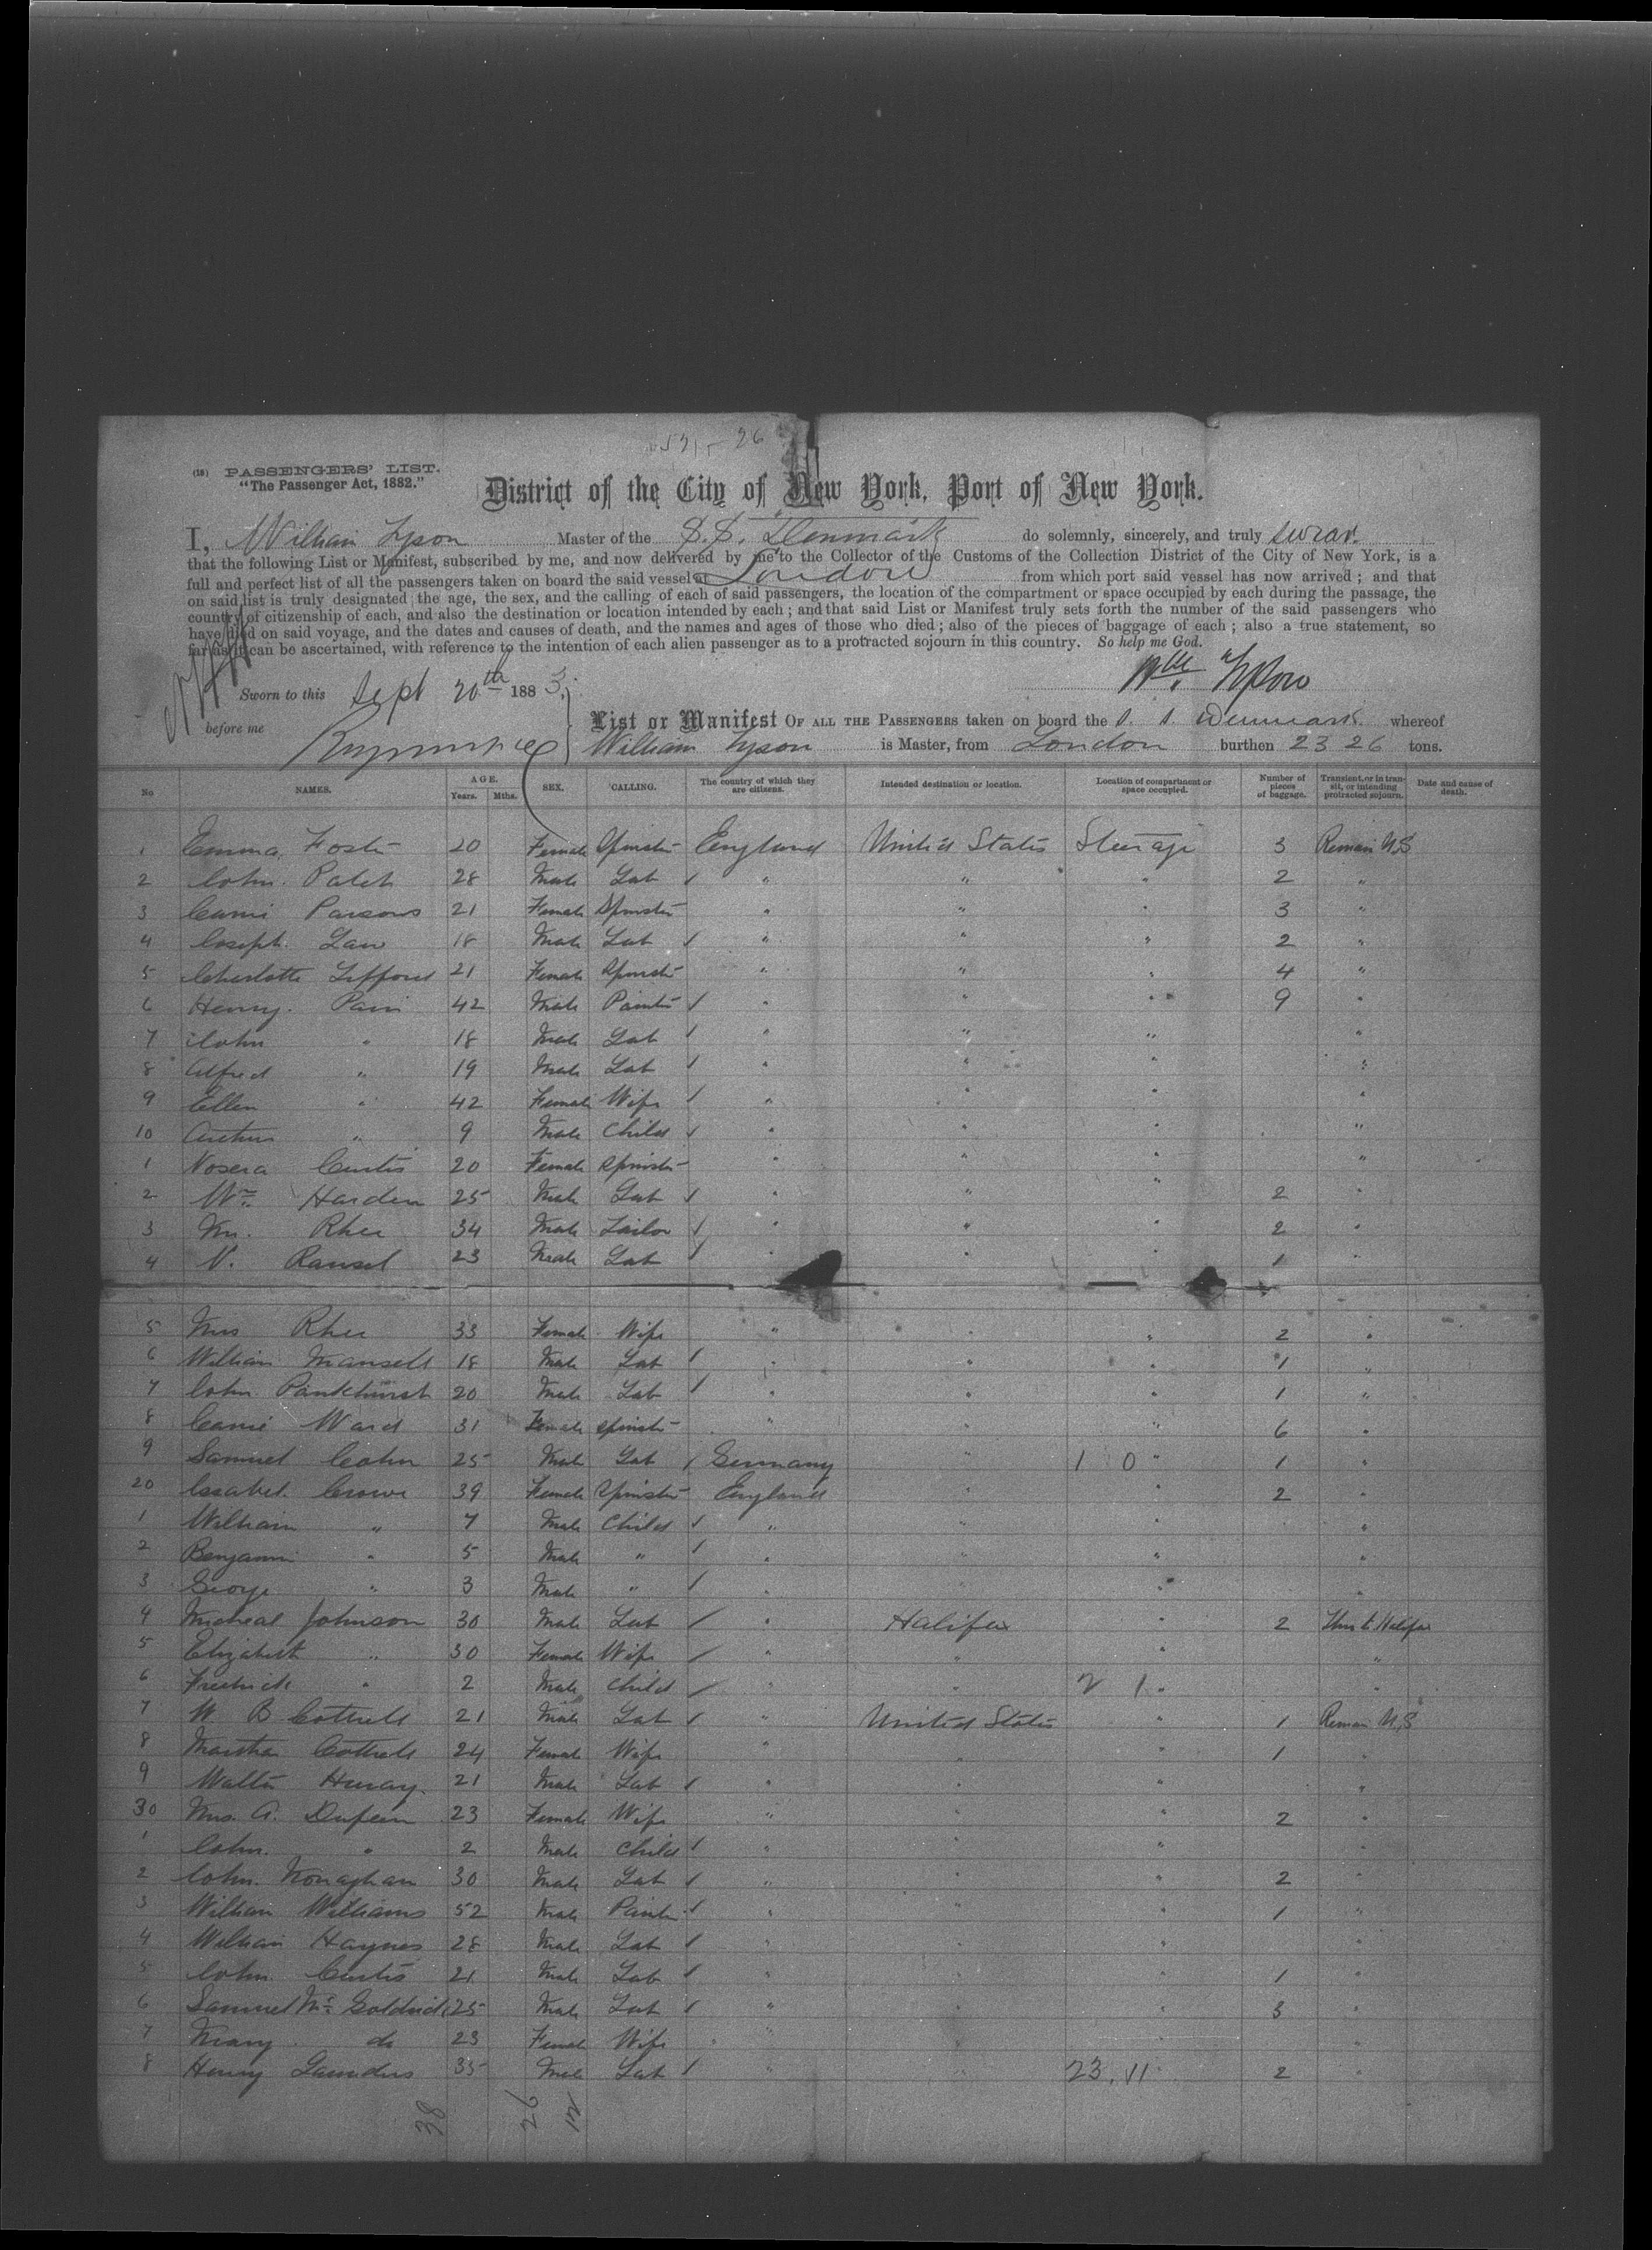 521 - 26
(18) PASSENGERS' LIST.
"The Passenger Act, 1882."
District of the City of New York, Port of New York.
I, William Tyson Master of the S.S. Denmark do solemnly, sincerely, and truly swear
that the following List or Manifest, subscribed by me, and now delivered by me to the Collector of the Customs of the Collection District of the City of New York, is a
full and perfect list of all the passengers taken on board the said vessel at London from which port said vessel has now arrived; and that
on said list is truly designated the age, the sex, and the calling of each of said passengers, the location of the compartment or space occupied by each during the passage, the
country of citizenship of each, and also the destination or location intended by each; and that said List or Manifest truly sets forth the number of the said passengers who
have died on said voyage, and the dates and causes of death, and the names and ages of those who died; also of the pieces of baggage of each; also a true statement, so
far as it can be ascertained, with reference to the intention of each alien passenger as to a protracted sojourn in this country. So help me God.
Wm Tyson
Sworn to this Sept 20th 1883
before me
List or Manifest OF ALL THE PASSENGERS taken on board the S. S. Denmark whereof
William Tyson is Master, from London burthen 2326 tons.
No NAMES. AGE. Years. Mths. SEX. CALLING. The country of which they are citizens. Intended destination or location. Location of compartment or space occupied. Number of pieces of baggage. Transient, or in transit, or intending protracted sojourn. Date and cause of death.
1 Emma Foster 20 Female Spinster England United States Steerage 3 Remain U.S
2 John Patch 28 Male Lab / " " " 2 "
3 Jamie Parsons 21 Female Spinster " " " 3 "
4 Joseph Law 18 Male Lab / " " " 2 "
5 Charlotte 21 Female Spinster " " " 4 "
6 Henry Pain 42 Male Painter / " " " 9 "
7 John " 18 Male Lab / " " " "
8 Alfred " 19 Male Lab / " " " "
9 Ellen " 42 Female Wife / " " " "
10 Arthur " 9 Male Child / " " " "
1 Curtis 20 Female Spinster " " " "
2 Wm Harden 25 Male Lab / " " " 2 "
3 Rhee 34 Male Tailor / " " " 2 "
4 23 Male Lab / " " " 1 "
5 Mrs Rhee 33 Female Wife " " " 2 "
6 William Mansell 18 Male Lab / " " " 1 "
7 John Pankhurst 20 Male Lab / " " " 1 "
8 Ward 31 Female Spinster " " " 6 "
9 Samuel Cohn 25 Male Lab / Germany " 1 0 " 1 "
20 Isabel Crowe 39 Female Spinster England " " 2 "
1 William " 7 Male Child / " " " "
2 Benjamin " 5 Male " / " " " "
3 George " 3 Male " / " " " "
4 Micheal Johnson 30 Male Lab / " Halifax " 2 Thro to Halifax
5 Elizabeth " 30 Female Wife / " " " "
6 Fredrick " 2 Male Child / " " 2 1 " "
7 W B Cottrell 21 Male Lab / " United States " 1 Remain U.S
8 Martha Cottrell 24 Female Wife " " " 1 "
9 Walter 21 Male Lab / " " " "
30 Mrs. A. 23 Female Wife " " " 2 "
1 John " 2 Male Child / " " " "
2 John Monaghan 30 Male Lab / " " " 2 "
3 William Williams 52 Male Painter / " " " 1 "
4 William Haynes 28 Male Lab / " " " "
5 John Curtis 21 Male Lab / " " " 1 "
6 Samuel 25 Male Lab / " " " 3 "
7 Mary do 23 Female Wife " " " "
8 Henry Saunders 35 Male Lab / " " 23.11 " 2 "
38 26 12